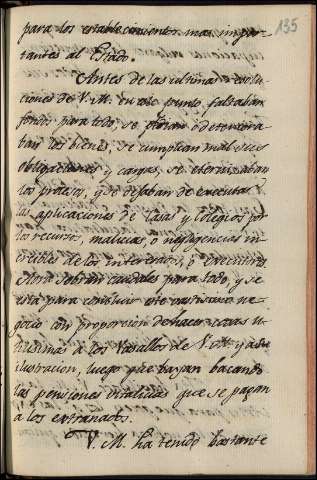 135
para los establecimientos mas impor-
tantes al Estado.
Antes de las ultimas resolu-
ciones de V. M. en este punto, faltaban
fondos para todo, se perdian ó deteriora-
ban los bienes, se cumplian mal sus
obligaciones y cargas, se eternizaban
los pleitos, y se dejaban de executar
las aplicaciones de casas, y Colegios por
los recursos, malicias, ó negligencias in-
creibles de los interesados, ó executores
Ahora sobran caudales para todo, y se
está para concluir este vastisimo ne-
gocio con proporcion de hacer cosas u-
tilisimas á los Vasallos de V. M. y á su
ilustracion, luego que vayan vacando
las pensiones vitalicias que se pagan
á los extrañados.
V. M. ha tenido bastante